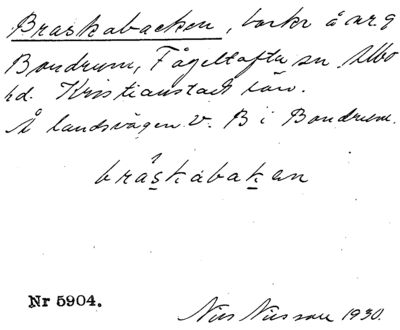 Braskabacken, backe å ar. 9
Bondrum, Fågeltofta sn Albo
hd. Kristianstads län.
Å landsvägen V. B i Bondrum.
bråskabakan
Nr 5904.
Nils Nilsson 1930.